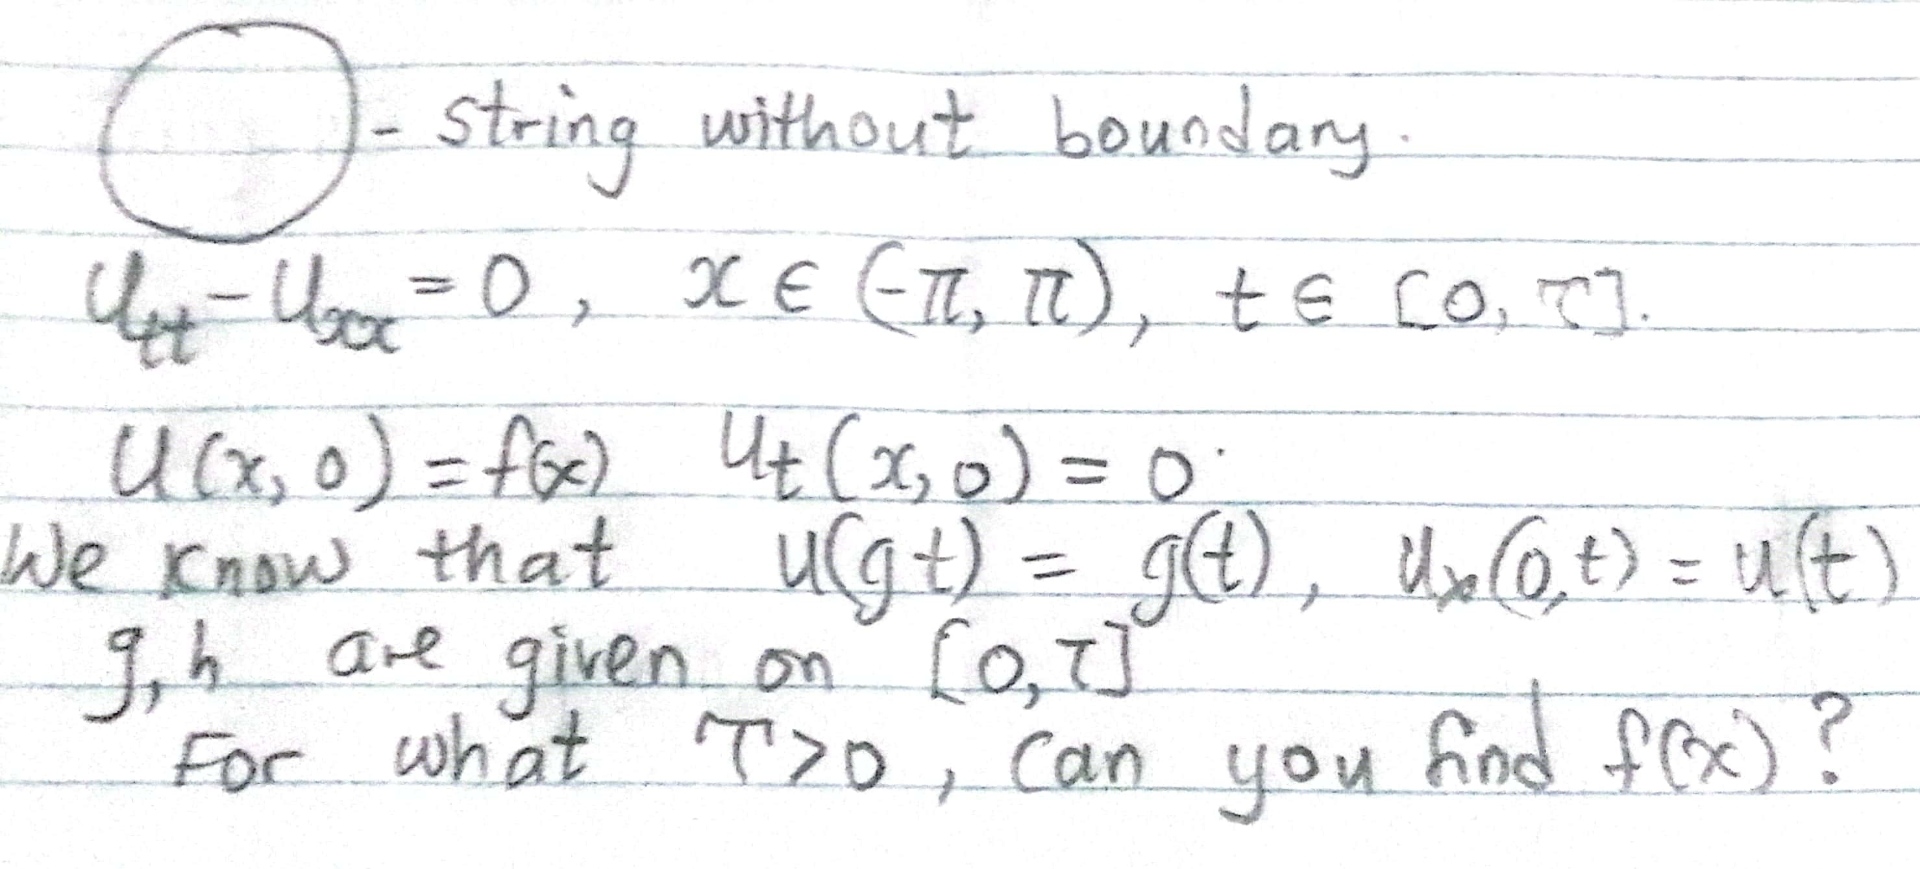 - string without boundary.
Utt - Uxx = 0, x ∈ (-π, π), t ∈ [0, T].
U(x, 0) = f(x) Ut(x, 0) = 0.
We know that u(g t) = g(t), Ux(0, t) = u(t)
g, h are given on [0, T]
For what T > 0, can you find f(x)?